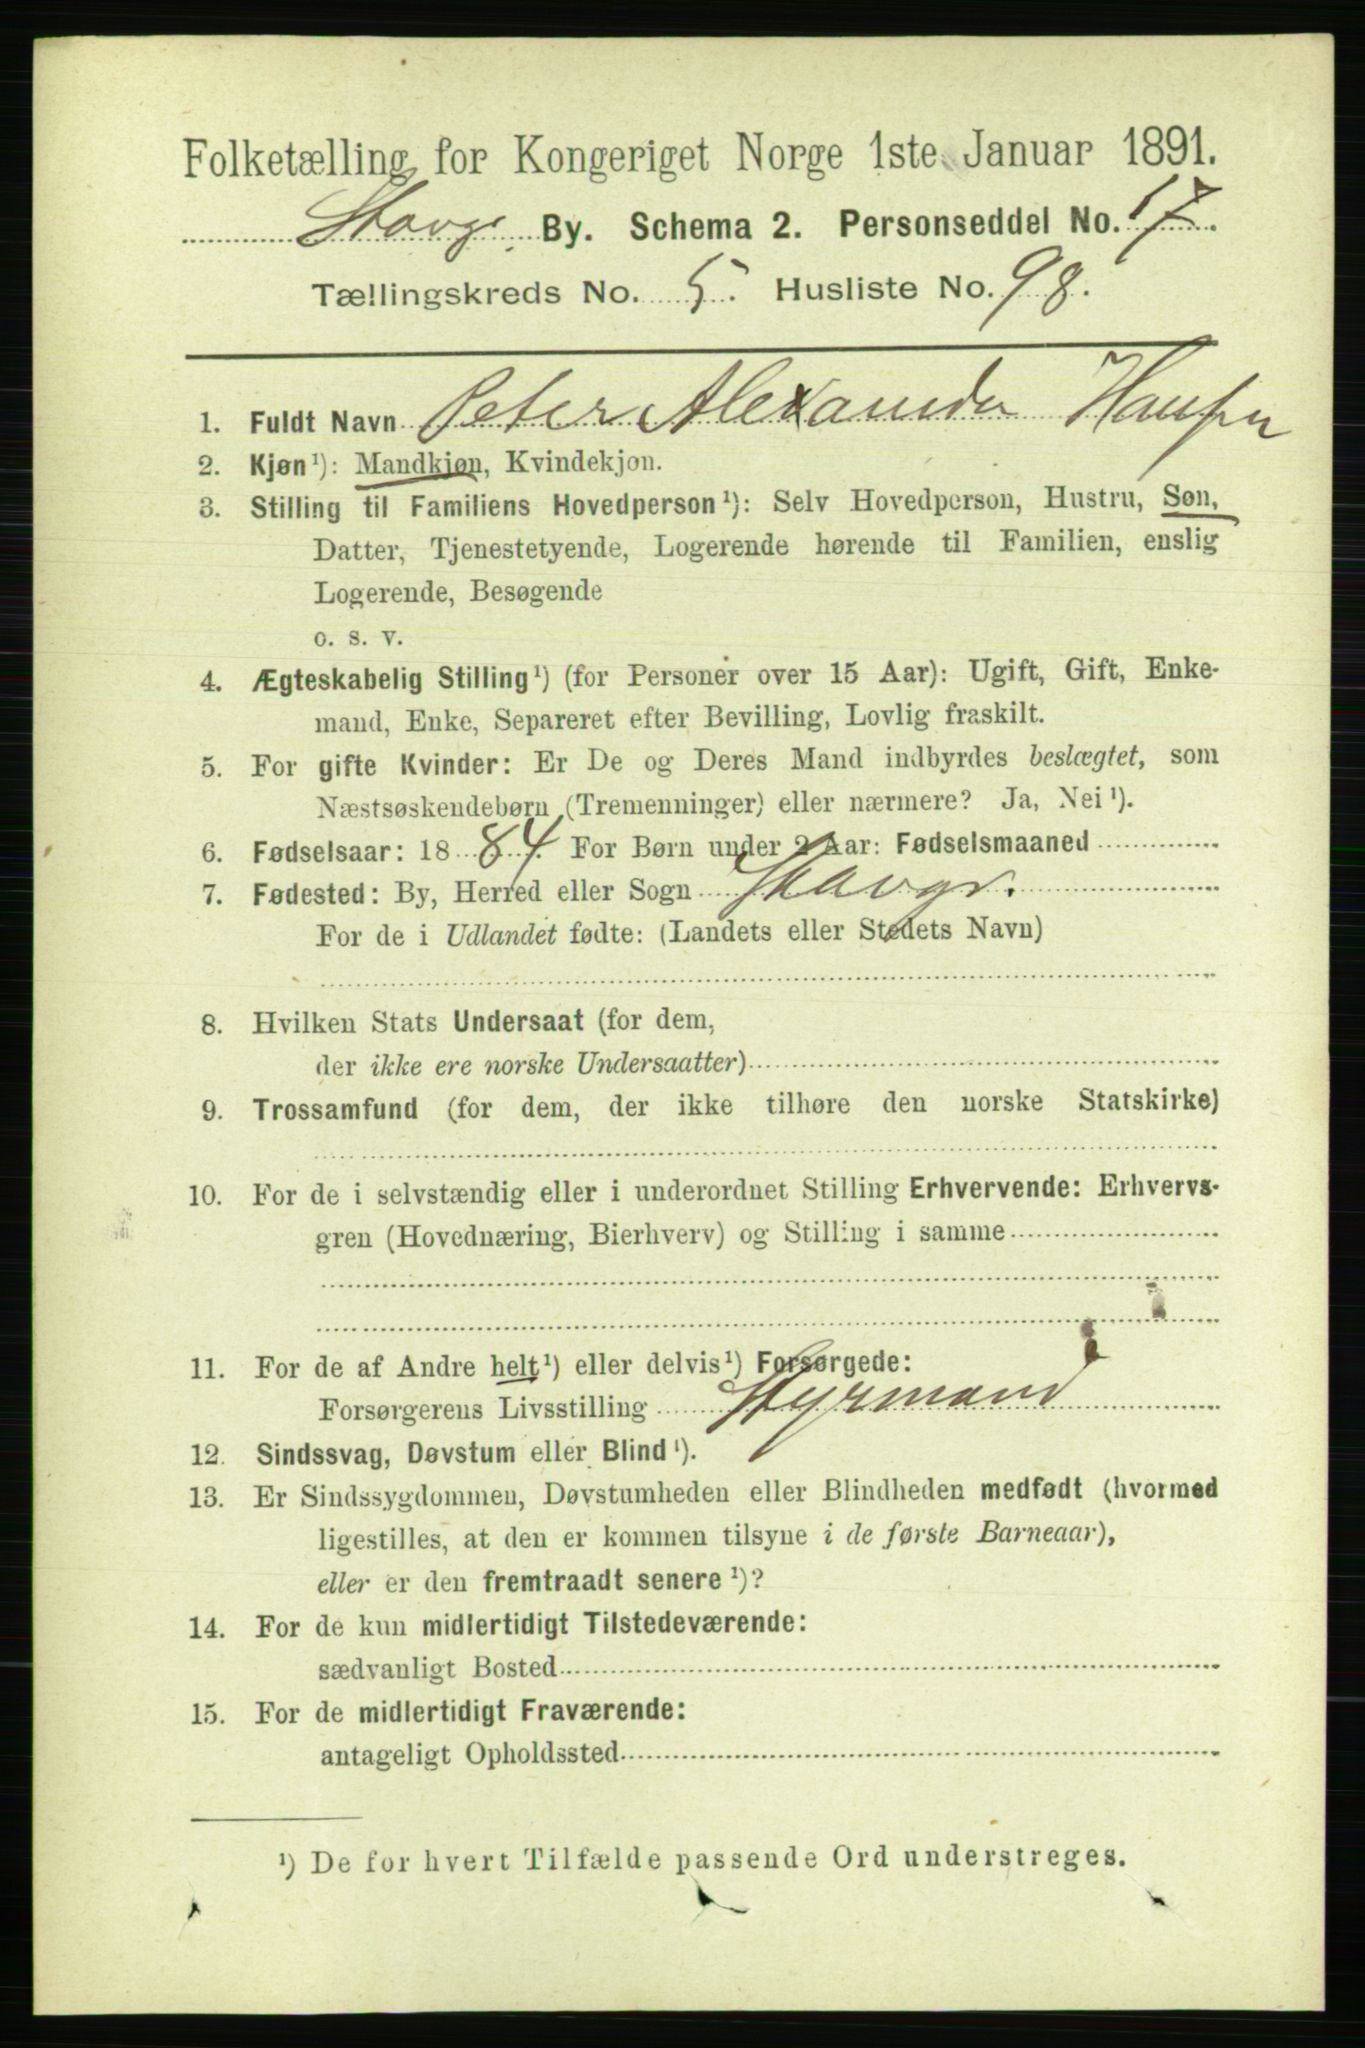 Folketælling for Kongeriget Norge 1ste Januar 1891.
Stavgr By. Schema 2. Personseddel No. 17.
Tællingskreds No. 5. Husliste No. 98.
1. Fuldt Navn Peter Alexander Hansen
2. Kjøn¹): Mandkjøn, Kvindekjøn.
3. Stilling til Familiens Hovedperson¹): Selv Hovedperson, Hustru, Søn,
Datter, Tjenestetyende, Logerende hørende til Familien, enslig
Logerende, Besøgende
o. s. v.
4. Ægteskabelig Stilling¹) (for Personer over 15 Aar): Ugift, Gift, Enke-
mand, Enke, Separeret efter Bevilling, Lovlig fraskilt.
5. For gifte Kvinder: Er De og Deres Mand indbyrdes beslægtet, som
Næstsøskendebørn (Tremenninger) eller nærmere? Ja, Nei¹).
6. Fødselsaar: 1884. For Børn under 2 Aar: Fødselsmaaned
7. Fødested: By, Herred eller Sogn Stavgr.
For de i Udlandet fødte: (Landets eller Stedets Navn)
8. Hvilken Stats Undersaat (for dem,
der ikke ere norske Undersaatter)
9. Trossamfund (for dem, der ikke tilhøre den norske Statskirke)
10. For de i selvstændig eller i underordnet Stilling Erhvervende: Erhvervs-
gren (Hovednæring, Bierhverv) og Stilling i samme
11. For de af Andre helt¹) eller delvis¹) Forsørgede:
Forsørgerens Livsstilling Styrmand
12. Sindssvag, Døvstum eller Blind¹).
13. Er Sindssygdommen, Døvstumheden eller Blindheden medfødt (hvormed
ligestilles, at den er kommen tilsyne i de første Barneaar),
eller er den fremtraadt senere¹)?
14. For de kun midlertidigt Tilstedeværende:
sædvanligt Bosted
15. For de midlertidigt Fraværende:
antageligt Opholdssted
¹) De for hvert Tilfælde passende Ord understreges.